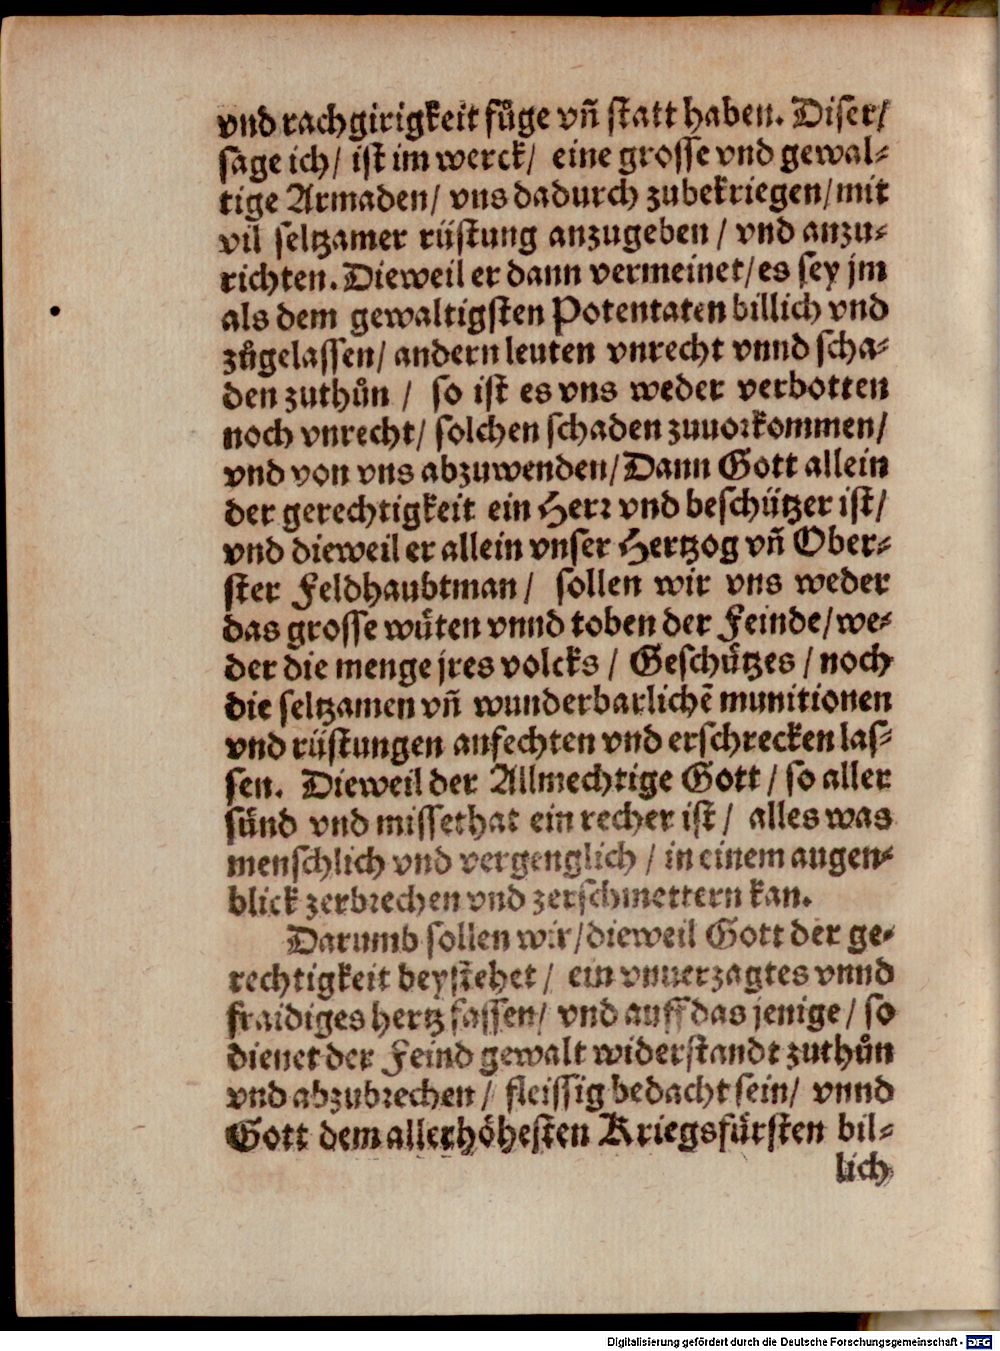 vnd rachgirigkeit fůge vñ statt haben. Diser/
sage ich/ ist im werck/ eine grosse vnd gewal-
tige Armaden/ vns dadurch zubekriegen/ mit
vil seltzamer rüstung anzugeben / vnd anzu-
richten. Dieweil er dann vermeinet/ es sey jm
als dem gewaltigsten Potentaten billich vnd
zůgelassen/ andern leuten vnrecht vnnd scha-
den zuthůn / so ist es vns weder verbotten
noch vnrecht/ solchen schaden zuuorkommen/
vnd von vns abzuwenden/ Dann Gott allein
der gerechtigkeit ein Herr vnd beschützer ist/
vnd dieweil er allein vnser Hertzog vñ Ober-
ster Feldhaubtman/ sollen wir vns weder
das grosse wüten vnnd toben der Feinde/ we-
der die menge jres volcks / Geschützes / noch
die seltzamen vñ wunderbarlichẽ munitionen
vnd rüstungen anfechten vnd erschrecken las-
sen. Dieweil der Allmechtige Gott / so aller
sünd vnd missethat ein recher ist / alles was
menschlich vnd vergenglich / in einem augen-
blick zerbrechen vnd zerschmettern kan.
Darumb sollen wir/ dieweil Gott der ge-
rechtigkeit beystehet / ein vnuerzagtes vnnd
fraidiges hertz fassen/ vnd auff das jenige / so
dienet der Feind gewalt widerstandt zuthůn
vnd abzubrechen / fleissig bedacht sein/ vnnd
Gott dem allerhöhesten Kriegsfürsten bil-
lich
Digitalisierung gefördert durch die Deutsche Forschungsgemeinschaft - DFG